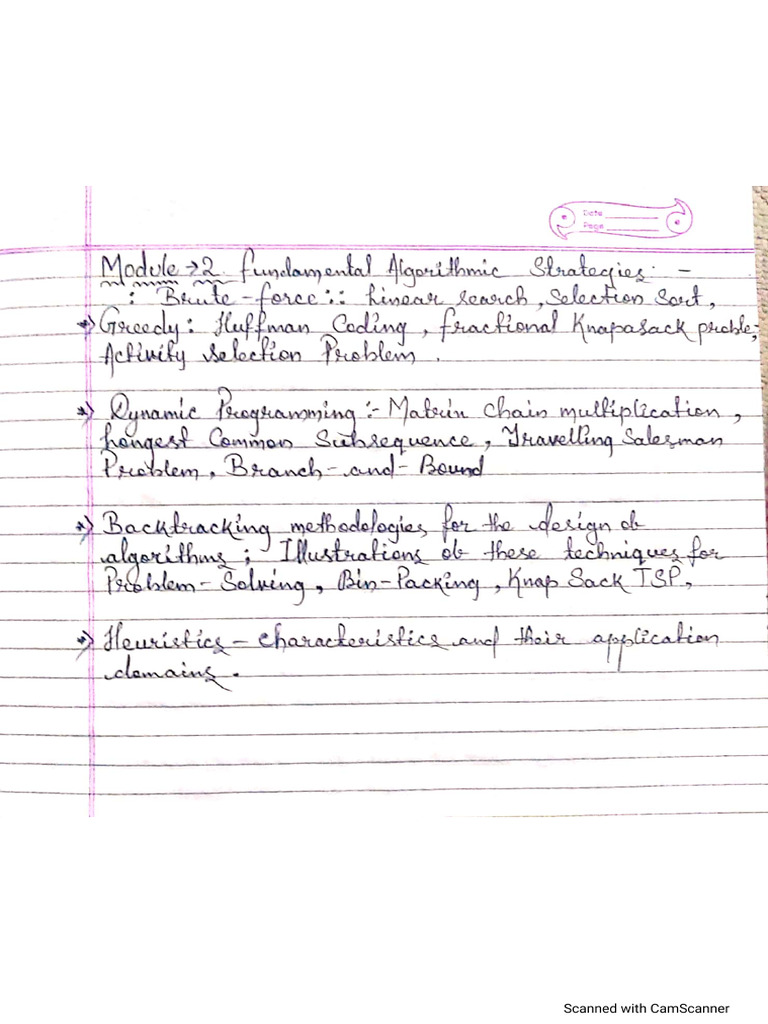 Date
Page
Module → 2. Fundamental Algorithmic Strategies: -
: Brute-force :: Linear search, Selection Sort,
→ Greedy: Huffman Coding, fractional Knapasack proble;
Activity selection Problem.
→ Dynamic Programming :- Matrin Chain multiplication,
Longest Common Subsequence, Travelling Salesman
Problem, Branch-and-Bound
→ Backtracking methodologies for the design ob
algorithms; Illustrations ob these techniques for
Problem-Solving, Bin-Packing, Knap Sack TSP,
→ Heuristics - characteristics and their application
domains.
Scanned with CamScanner